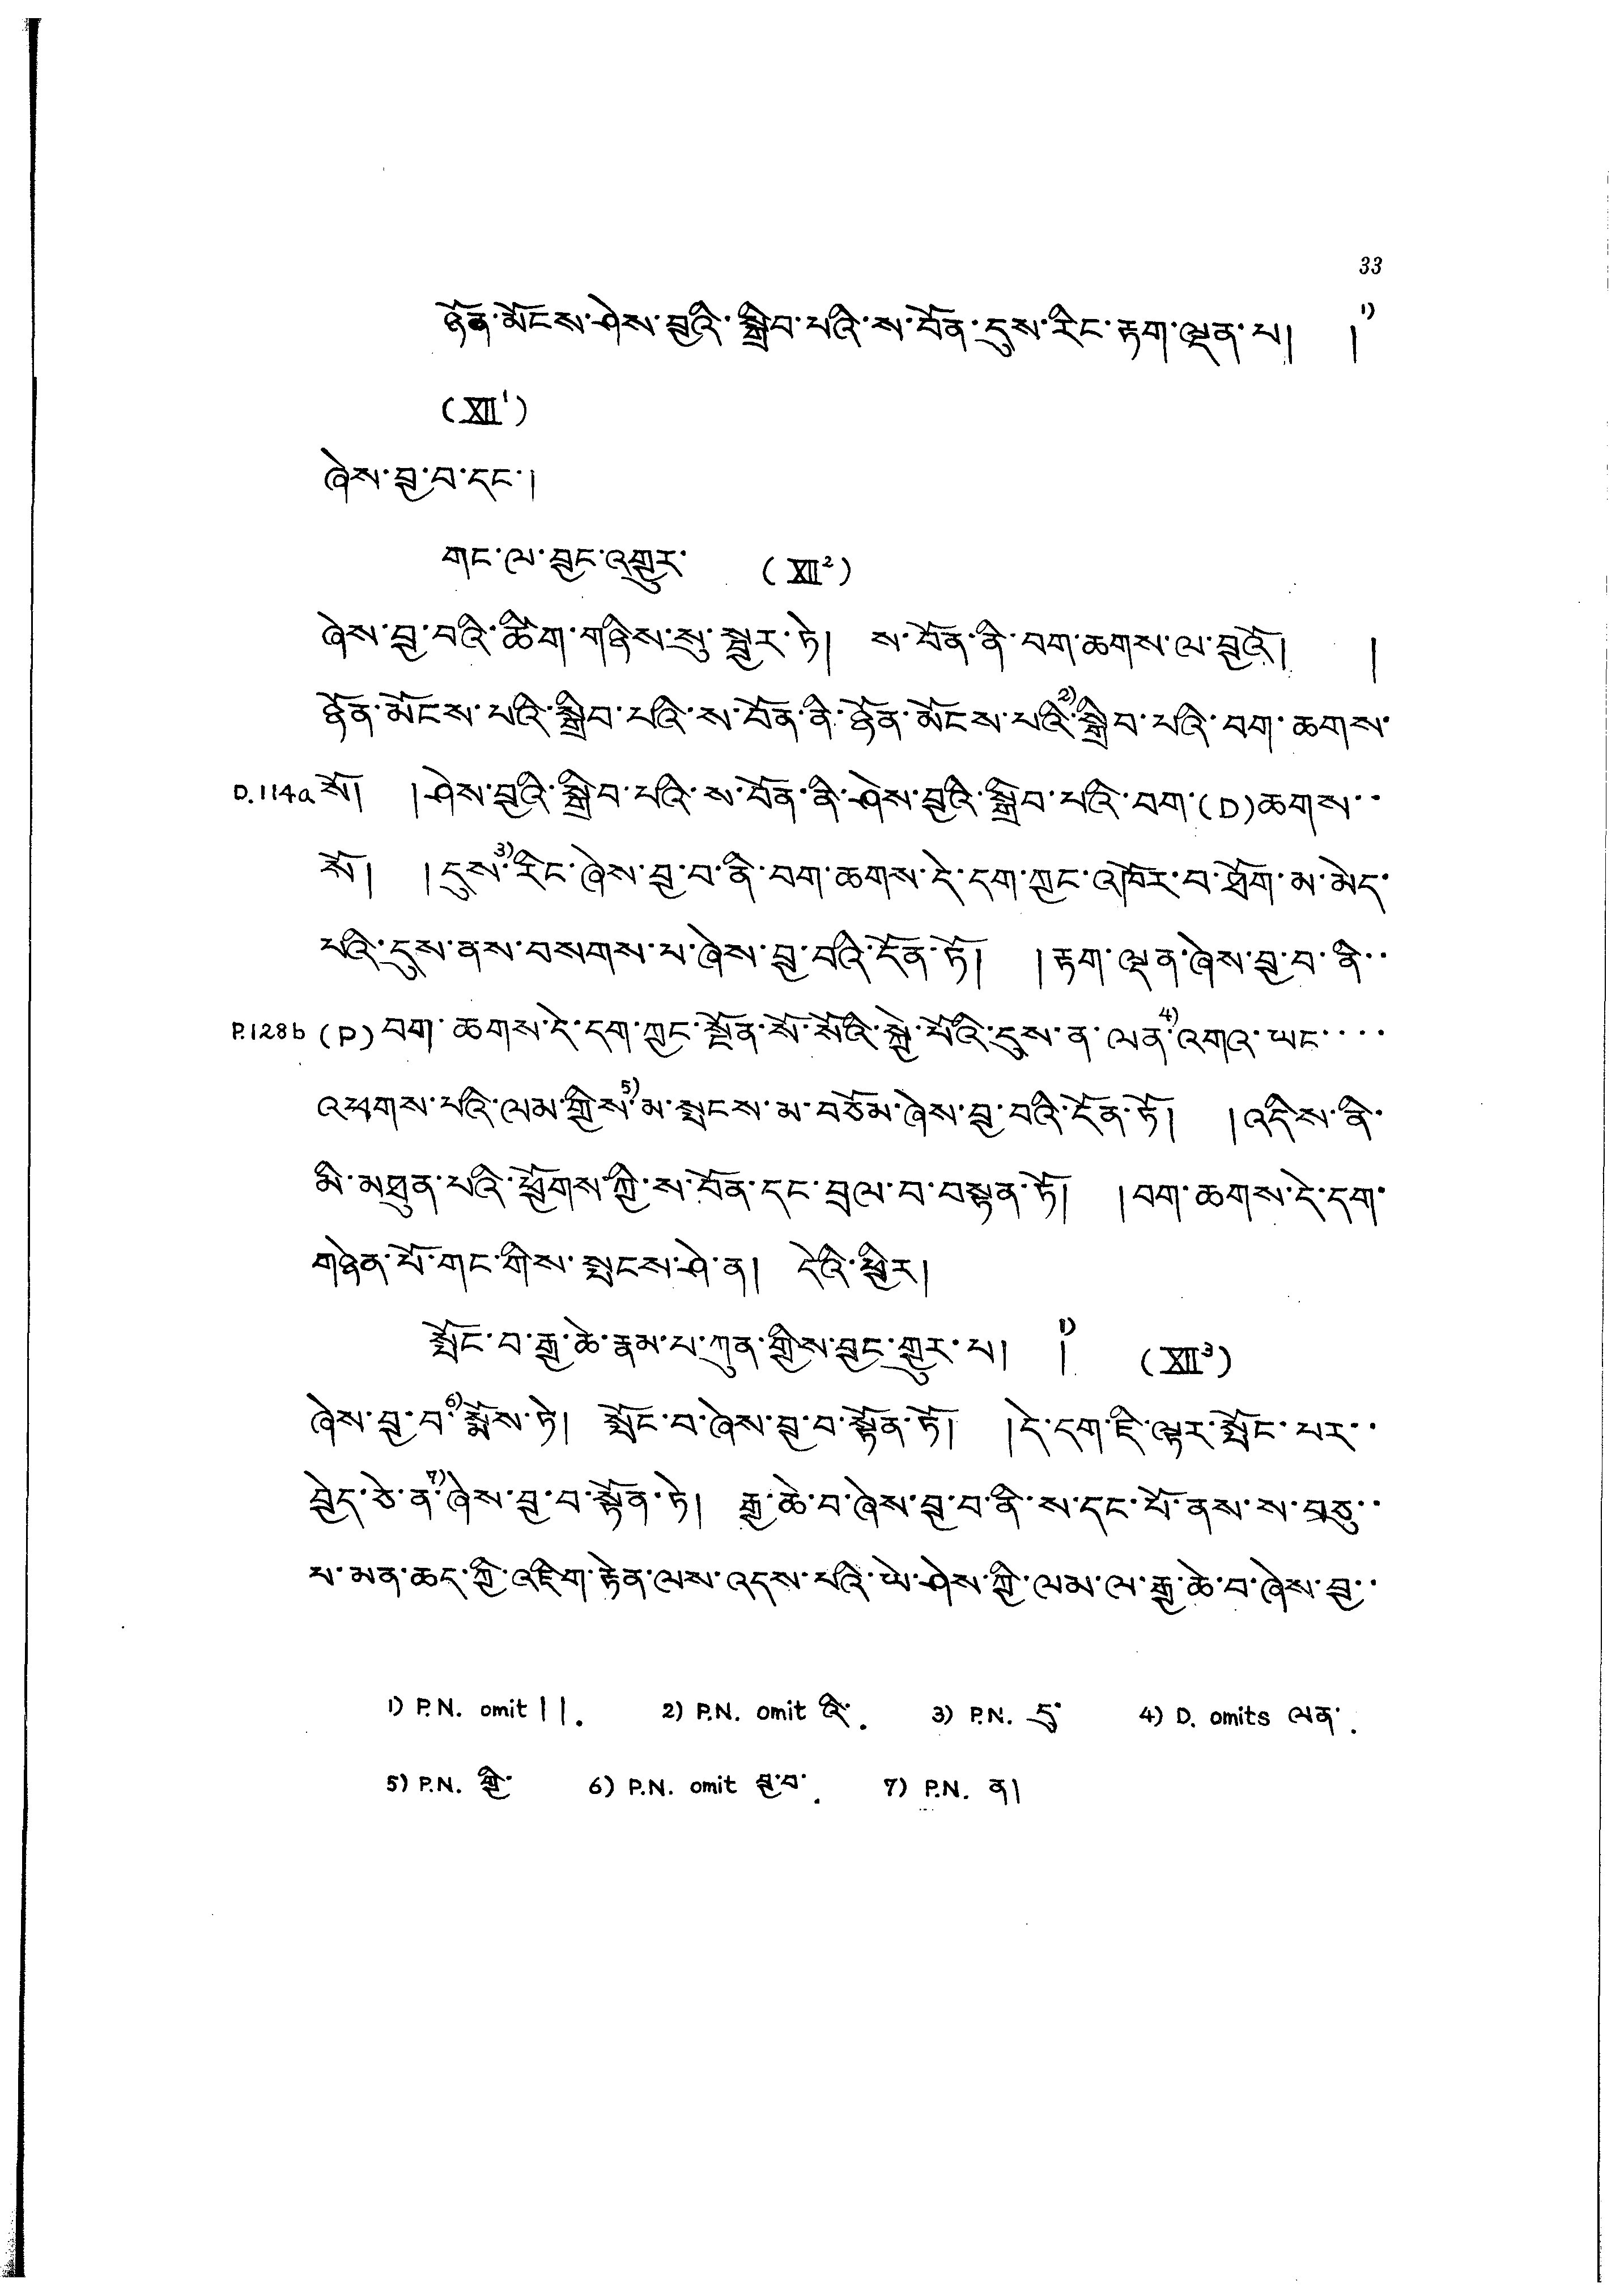 33
ཉོན་མོངས་ཤེས་བྱའི་སྒྲིབ་པའི་ས་བོན་དུས་རིང་རྟག་ལྡན་པ། །¹⁾
(XII¹)
ཞེས་བྱ་བ་དང་།
གང་ལ་བྱང་འགྱུར་ (XII²)
ཞེས་བྱ་བའི་ཚིག་གཉིས་སུ་སྦྱར་ཏེ། ས་བོན་ནི་བག་ཆགས་ལ་བྱའོ། །
ཉོན་མོངས་པའི་སྒྲིབ་པའི་ས་བོན་ནི་ཉོན་མོངས་པའི་²⁾སྒྲིབ་པའི་བག་ཆགས་
D.114a སོ། །ཤེས་བྱའི་སྒྲིབ་པའི་ས་བོན་ནི་ཤེས་བྱའི་སྒྲིབ་པའི་བག་(D)ཆགས་་
སོ། །དུས་³⁾རིང་ཞེས་བྱ་བ་ནི་བག་ཆགས་དེ་དག་ཀྱང་འཁོར་བ་ཐོག་མ་མེད་
པའི་དུས་ནས་བསགས་པ་ཞེས་བྱ་བའི་དོན་ཏོ། །རྟག་ལྡན་ཞེས་བྱ་བ་ནི་་
P.128b (P) བག་ཆགས་དེ་དག་ཀྱང་སྔོན་སོ་སོའི་སྐྱེ་བོའི་དུས་ན་ལན་⁴⁾འགའ་ཡང་་་་
འཕགས་པའི་ལམ་གྱིས་⁵⁾མ་སྤངས་མ་བཅོམ་ཞེས་བྱ་བའི་དོན་ཏོ། །འདིས་ནི་
མི་མཐུན་པའི་ཕྱོགས་ཀྱི་ས་བོན་དང་བྲལ་བ་བསྟན་ཏོ། །བག་ཆགས་དེ་དག་
གཉེན་པོ་གང་གིས་སྤངས་ཤེ་ན། དེའི་ཕྱིར།
སྤོང་བ་རྒྱ་ཆེ་རྣམ་པ་ཀུན་གྱིས་བྱང་གྱུར་པ། །¹⁾ (XII³)
ཞེས་བྱ་བ་⁶⁾སྨོས་ཏེ། སྤོང་བ་ཞེས་བྱ་བ་སྟོན་ཏོ། །དེ་དག་ཇི་ལྟར་སྤོང་པར་་
བྱེད་ཅེ་ན་⁷⁾ཞེས་བྱ་བ་སྟོན་ཏེ། རྒྱ་ཆེ་བ་ཞེས་བྱ་བ་ནི་ས་དང་པོ་ནས་ས་བཅུ་་
པ་མན་ཆད་ཀྱི་འཇིག་རྟེན་ལས་འདས་པའི་ཡེ་ཤེས་ཀྱི་ལམ་ལ་རྒྱ་ཆེ་བ་ཞེས་བྱ་་
1) P.N. omit ། །. 2) P.N. omit འི་. 3) P.N. དུ་ 4) D. omits ལན་.
5) P.N. གྱི་ 6) P.N. omit བྱ་བ་. 7) P.N. ན།